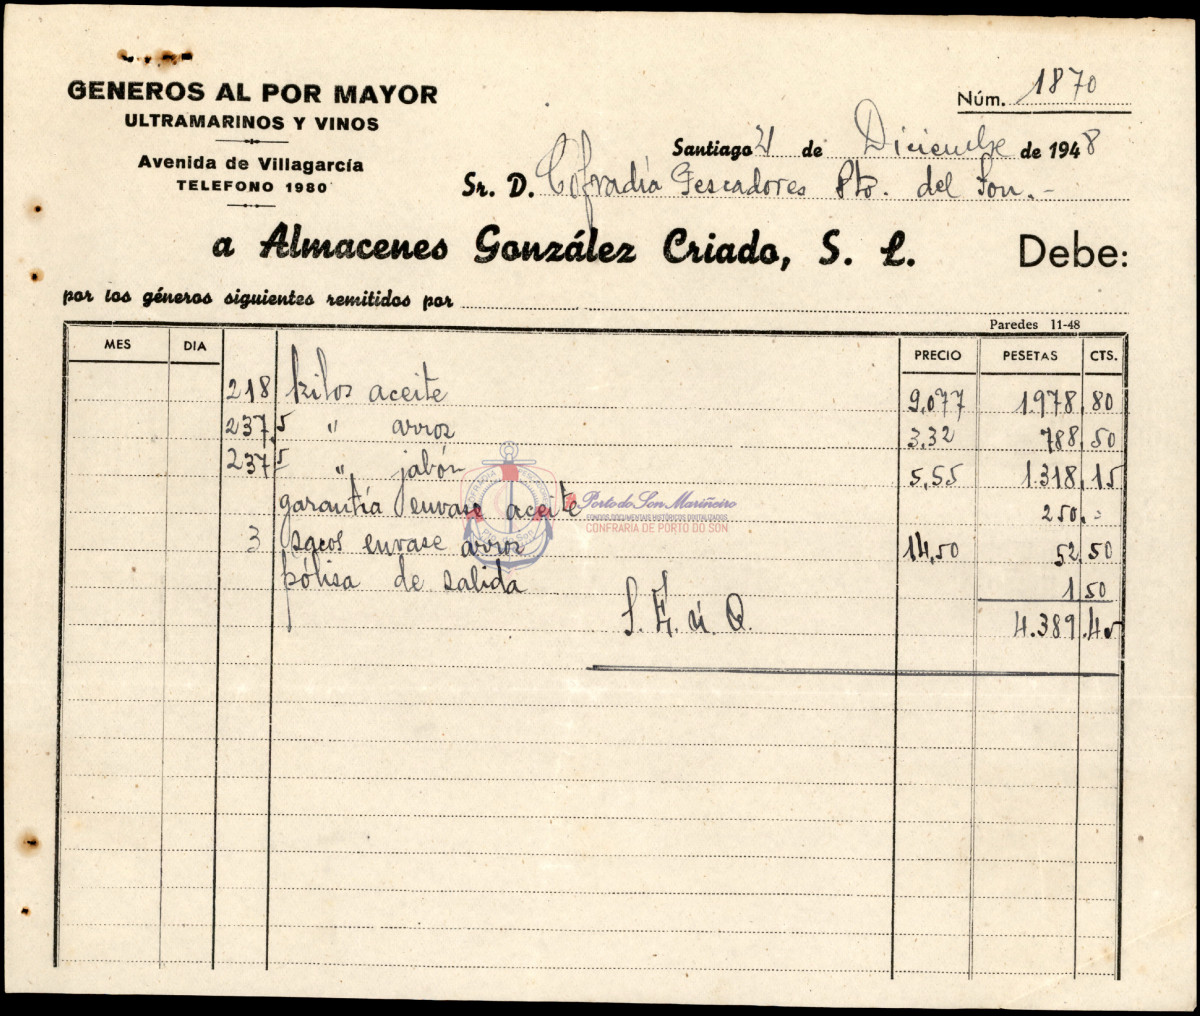 GENEROS AL POR MAYOR
ULTRAMARINOS Y VINOS
Avenida de Villagarcía
TELEFONO 1980
Núm. 1870
Santiago 21 de Diciembre de 1948
Sr. D. Cofradía Pescadores Pto. del Son.-
a Almacenes González Criado, S. L. Debe:
por los géneros siguientes remitidos por
Paredes 11-48
MES DIA PRECIO PESETAS CTS.
218 kilos aceite 9,077 1.978,80
237,5 " arros 3,32 788,50
237,5 " jabón 5,55 1.318,15
garantía envase aceite 250.-
3 sacos envase arros 14,50 52,50
pólisa de salida 1,50
S. E. ú O. 4.389,45
Porto do Son Mariñeiro
FONDOS DOCUMENTAIS HISTÓRICOS DIXITALIZADOS
CONFRARÍA DE PORTO DO SON